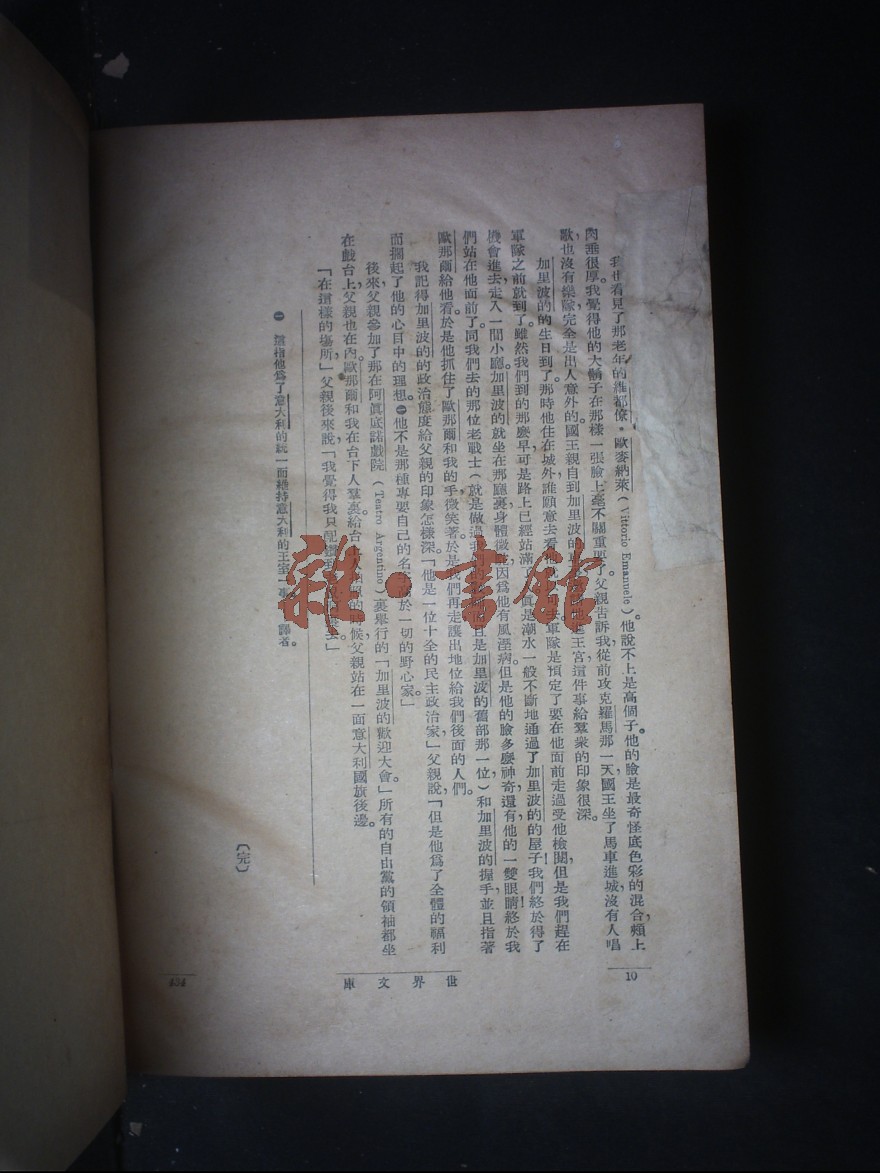 我也看見了那老年的維都僚・歐麥納萊(Vittorio Emanuele)。他說不上是高個子。他的臉是最奇怪底色彩的混合,頰上
肉垂很厚。我覺得他的大鬍子在那樣一張臉上毫不關重要了。父親告訴我,從前攻克羅馬那一天,國王坐了馬車進城,沒有人唱
歌,也沒有樂隊,完全是出人意外的。國王親自到加里波的 進王宮,這件事給羣衆的印象很深。
加里波的的生日到了。那時他住在城外,誰願意去看他 軍隊是預定了要在他面前走過受他檢閱,但是我們趕在
軍隊之前就到了。雖然我們到的那麼早,可是路上已經站滿了 眞是潮水一般不斷地通過了加里波的的屋子。我們終於得了
機會進去,走入一間小廳。加里波的就坐在那廳裏,身體微 因爲他有風溼病。但是他的臉多麼神奇,還有他的一雙眼睛!終於我
們站在他面前了。同我們去的那位老戰士(就是做過我們 且是加里波的舊部那一位)和加里波的握手,並且指著
歐那爾給他看。於是他抓住了歐那爾和我的手,微笑著。於是我們再走,讓出地位給我們後面的人們。
我記得加里波的的政治態度給父親的印象怎樣深。「他是一位十全的民主政治家,」父親說,「但是他爲了全體的福利
而擱起了他的心目中的理想。㊀他不是那種專要自己的名 於一切的野心家。」
後來,父親參加了那在阿眞底諾戲院(Teatro Argentino)裏舉行的「加里波的歡迎大會。」所有的自由黨的領袖都坐
在戲台上,父親也在內。歐那爾和我在台下人羣裏。給台上 照的時候,父親站在一面意大利國旗後邊。
「在這樣的場所,」父親後來說,「我覺得我只配 」
(完)
㊀ 這指他爲了意大利的統一而維持意大利的王室一事。 譯者。
世界文庫
10
434
雜・書館